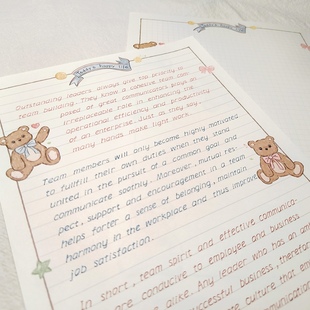 Teddy's happy life
Outstanding leaders always give top priority to
team building. They know a cohesive team com-
posed of great communicators plays an
irreplaceable role in enhancing the
operational effect and efficiency
of an enterprise. Just as they say,
many hands make light work.
Team members will only become highly motivated
to fullfill their own duties when they stand
united in the pursuit of a common goal and
communicate soothly. Moreover, mutual res-
pect, support and encouragement in a team
helps forter a sense of belonging, maintain
harmony in the workplace and thus improve
job satisfaction.
In short, team spirit and effective communica-
are conducive to employee and business
alike. Any leader who has an am
successful business, therefor
culture that em
communication